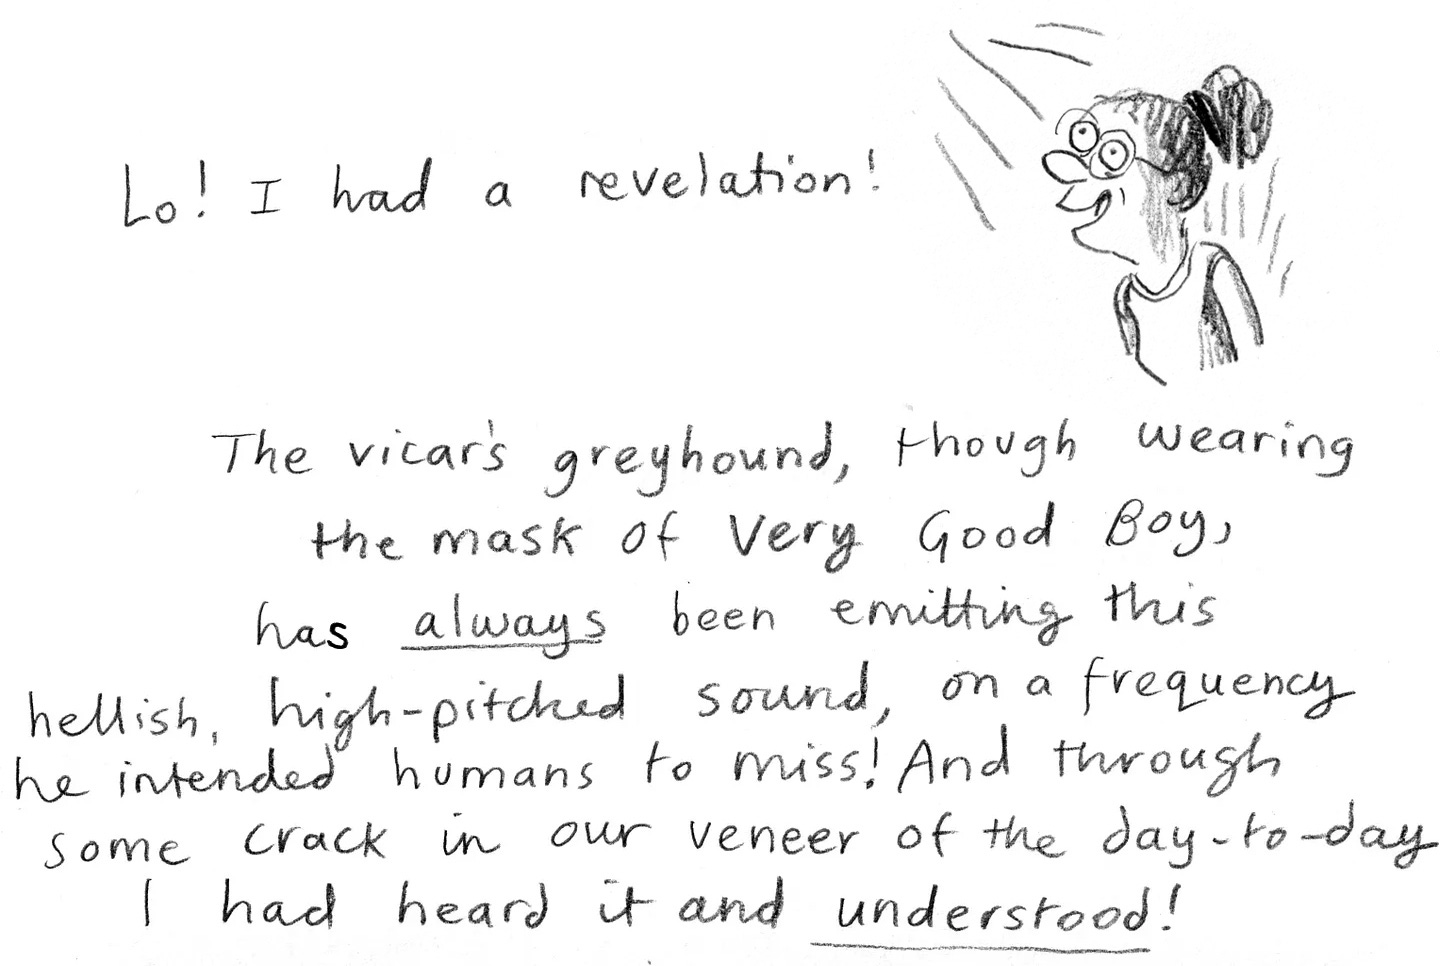 Lo! I had a revelation!
The vicar's greyhound, though wearing
the mask of Very Good Boy,
has always been emitting this
hellish, high-pitched sound, on a frequency
he intended humans to miss! And through
some crack in our veneer of the day-to-day
I had heard it and understood!